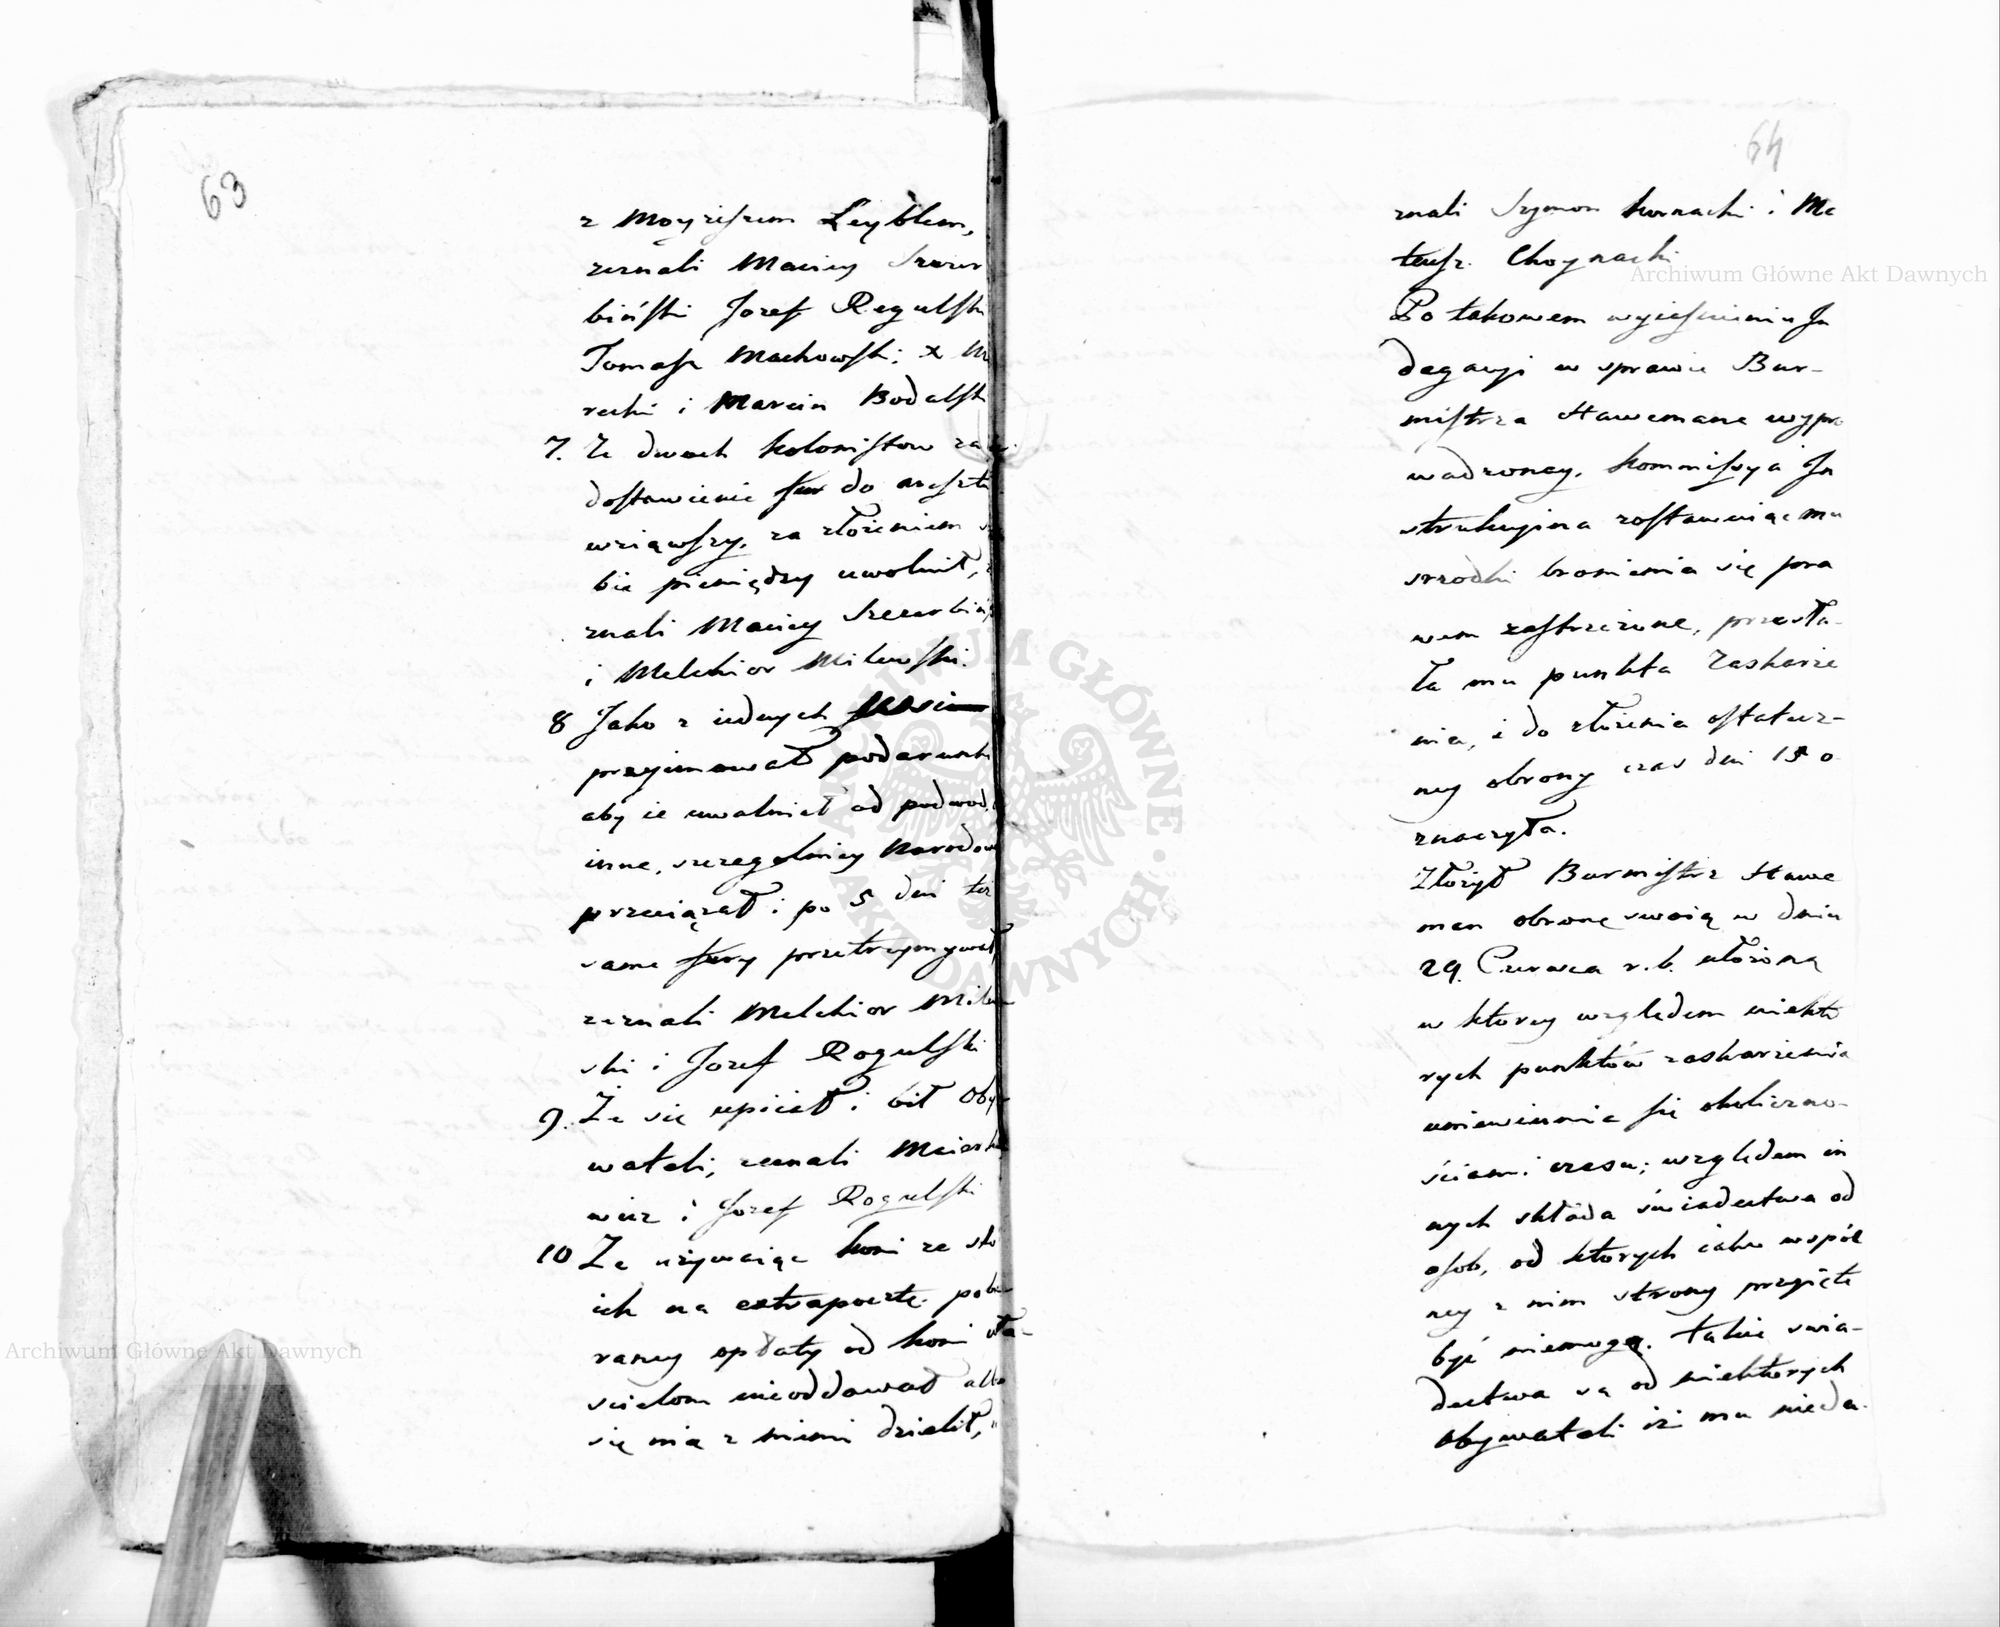 63
z Moyżeszem Leyblem,
zeznali Maciey Szczer
biński Jozef Regulski
Tomasz Machowski; x
recki i Marcin Bodalsk
7. Że dwoch kolonistow za
dostawienie fur do aresztu
wziąwszy, za złożeniem
bie pieniędzy uwolnił,
znali Maciey Szczerbińs
i Melchior Milewski.
8 Jako z iednych
przyimował podarunki
aby ie uwalniał od podwod,
inne, szczegolniey Narodow
przeciązał i po 5 dni też
same fury przetrzymywał,
zeznali Melchior Milew
ski i Jozef Rogulski
9. Że się upiiał i bił Oby
wateli; zeznali Meier
wicz i Jozef Rogulski
10 Że używaiąc koni ze sto
ich na extrapocztę. pobie
raney opłaty od koni wła-
scielom nieoddawał albo
się nią z niemi dzielił,
64
znali Szymon Kurnacki i Ma
teusz. Choynacki
Po takowem wyiaśnieniu In
dagacyi w sprawie Bur-
mistrza Hawemana wypro
wadzoney, Kommissya In
strukcyina zostawuiąc mu
srzodki bronienia się pra
wem zastrzeżone, przesła-
ła mu punkta Zaskarże
nia, i do złożenia ostatecz-
ney obrony czas dni 15 o
znaczyła.
Złożył Burmistrz Hawe
man obronę swoią w dniu
29. Czerwca r. b. ułożoną
w ktorey względem niekto
rych punktów zaskarżenia
uniewinnia się okoliczno-
ściami czasu; względem in
nych składa świadectwa od
osob, od ktorych iako wspól
ney z nim strony przyięte
być niemogą. Takie swia-
dectwa są od niektorych
Obywateli iż mu nieda-
Archiwum Główne Akt Dawnych
Archiwum Główne Akt Dawnych
ARCHIWUM GŁÓWNE AKT DAWNYCH